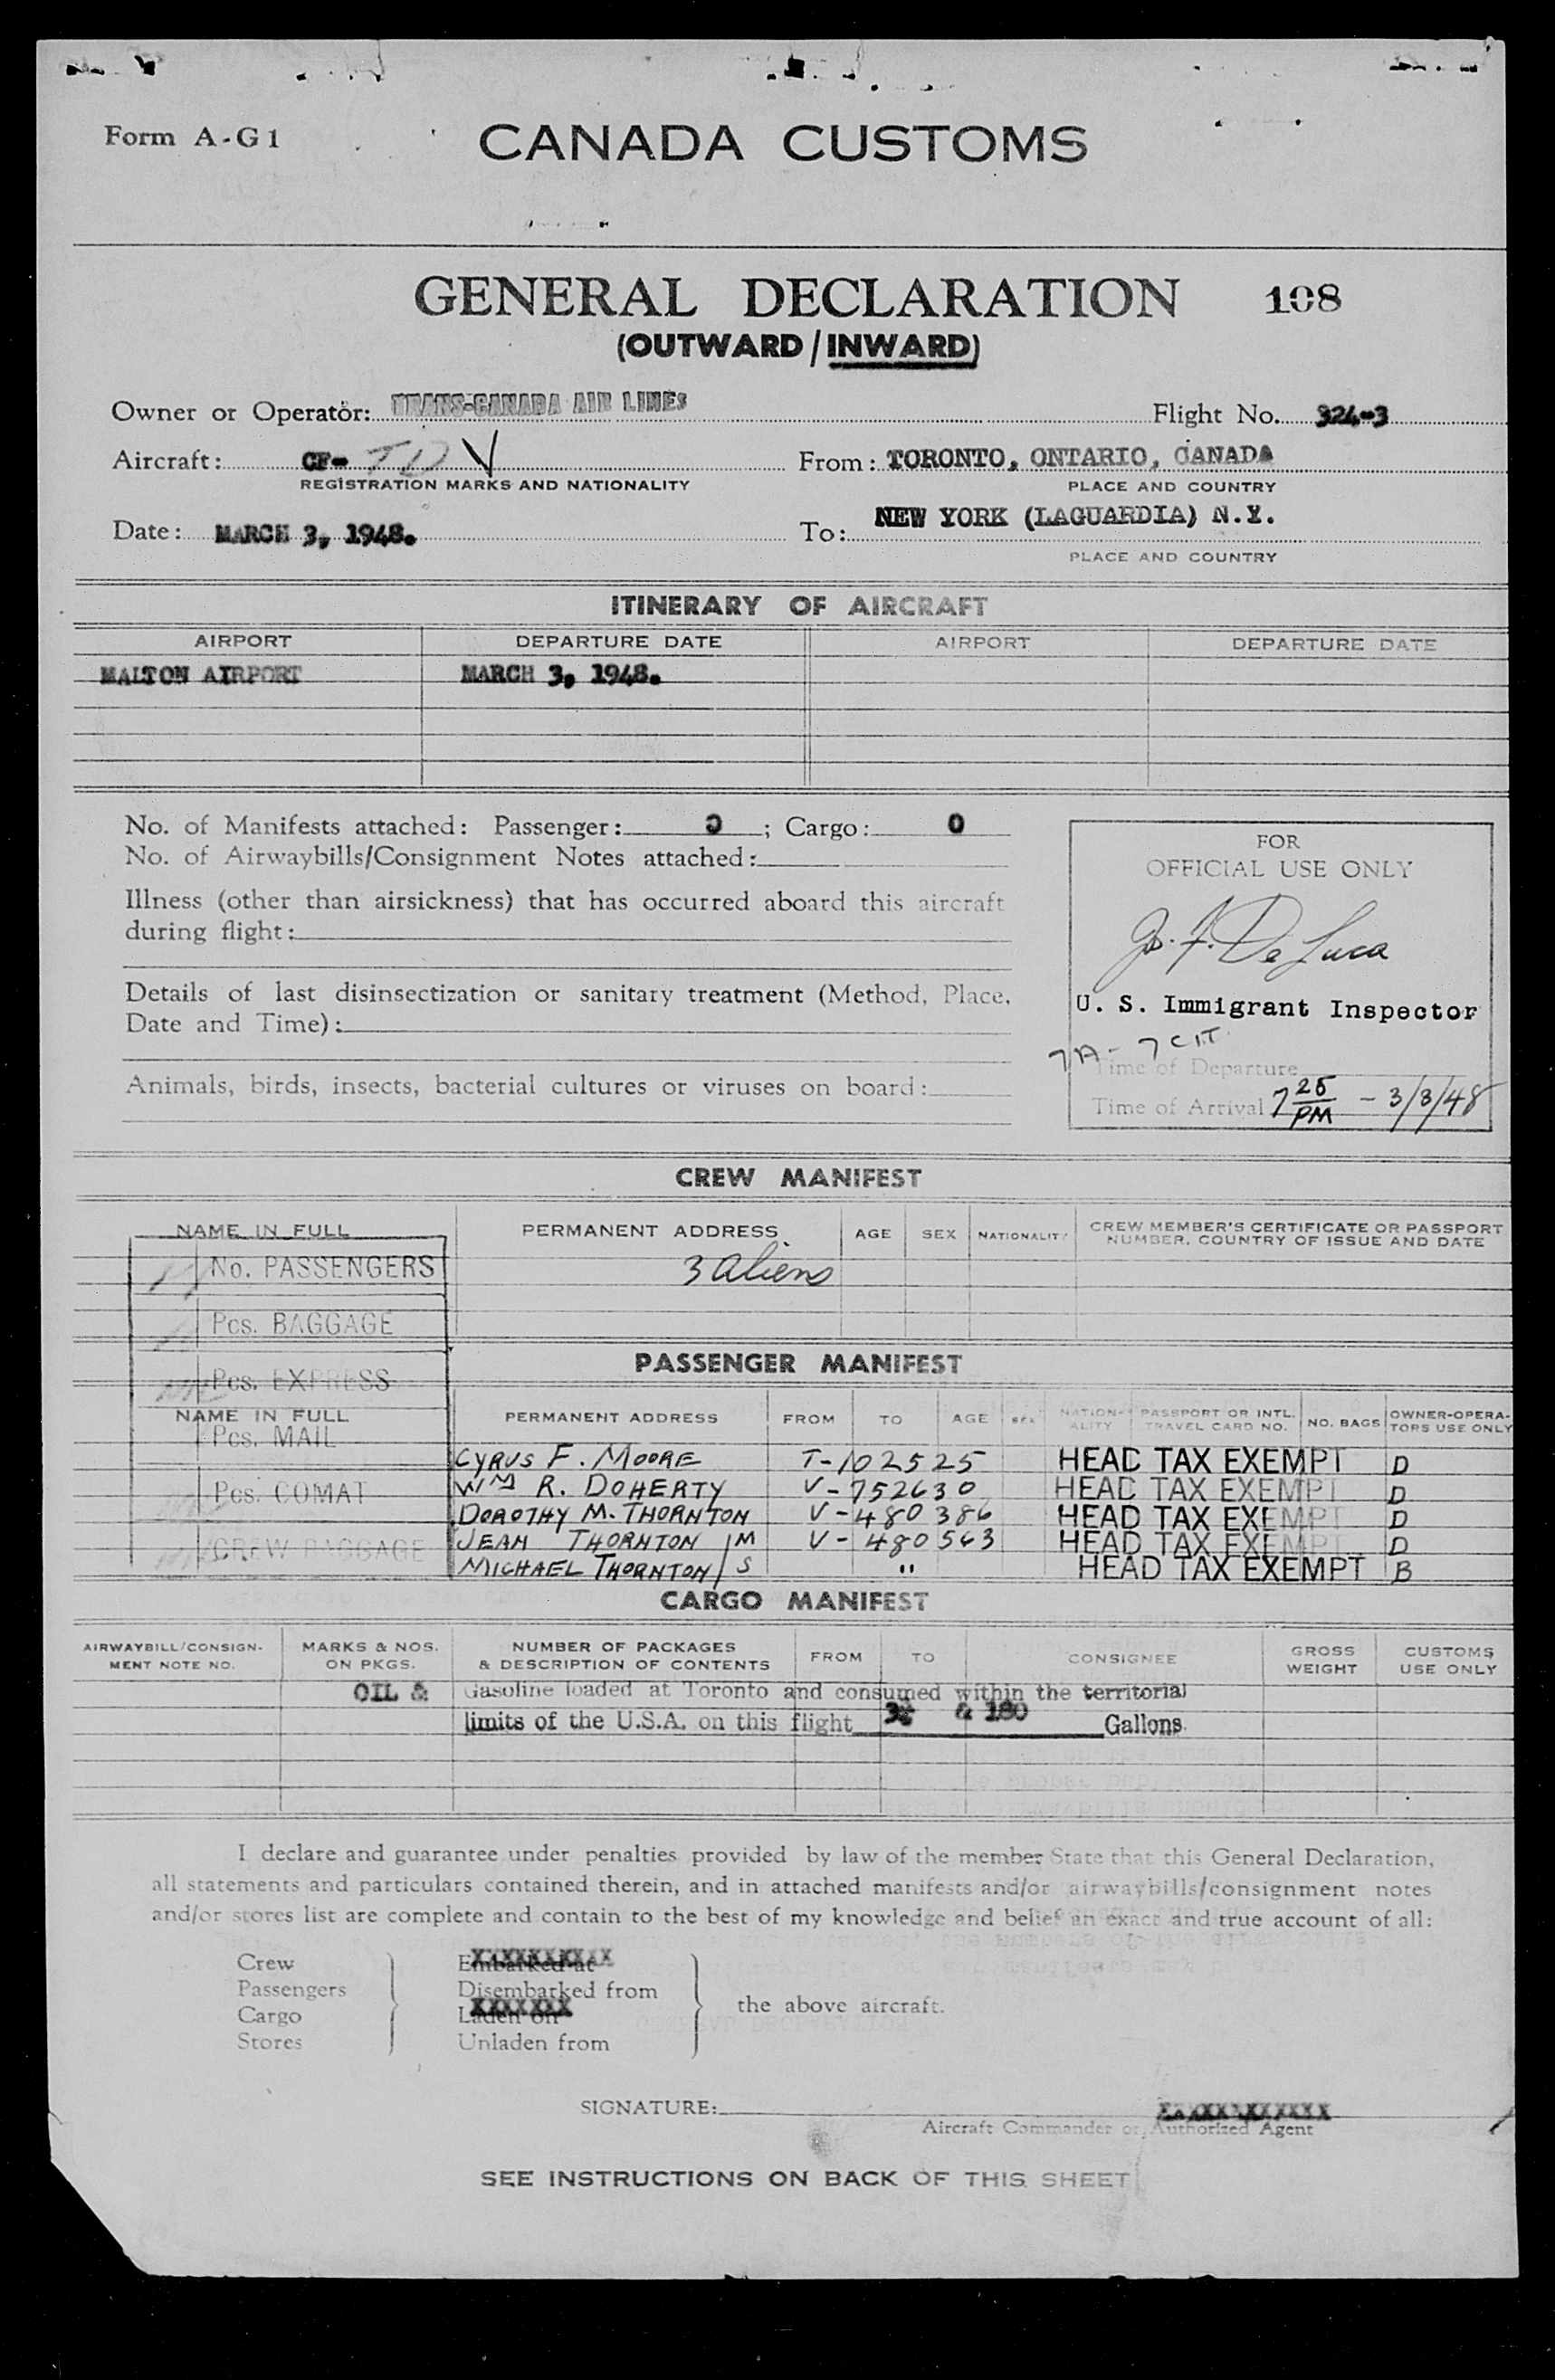 Form A-G1
CANADA CUSTOMS
GENERAL DECLARATION 108
(OUTWARD / INWARD)
Owner or Operator: TRANS-CANADA AIR LINES Flight No. 324-3
Aircraft: CF- TDV From: TORONTO, ONTARIO, CANADA
REGISTRATION MARKS AND NATIONALITY PLACE AND COUNTRY
Date: MARCH 3, 1948. To: NEW YORK (LAGUARDIA) N.Y.
PLACE AND COUNTRY
ITINERARY OF AIRCRAFT
AIRPORT DEPARTURE DATE AIRPORT DEPARTURE DATE
MALTON AIRPORT MARCH 3, 1948.
No. of Manifests attached: Passenger: 0 ; Cargo: 0
No. of Airwaybills/Consignment Notes attached:
Illness (other than airsickness) that has occurred aboard this aircraft
during flight:
Details of last disinsectization or sanitary treatment (Method, Place,
Date and Time):
Animals, birds, insects, bacterial cultures or viruses on board:
FOR
OFFICIAL USE ONLY
Jo. F. De Luca
U. S. Immigrant Inspector
7A - 7 CIT.
Time of Departure
Time of Arrival 7 25 PM - 3/3/48
CREW MANIFEST
NAME IN FULL PERMANENT ADDRESS AGE SEX NATIONALITY CREW MEMBER'S CERTIFICATE OR PASSPORT
NUMBER, COUNTRY OF ISSUE AND DATE
No. PASSENGERS 3 aliens
Pcs. BAGGAGE
PASSENGER MANIFEST
Pcs. EXPRESS
NAME IN FULL PERMANENT ADDRESS FROM TO AGE SEX NATION-ALITY PASSPORT OR INTL. TRAVEL CARD NO. NO. BAGS OWNER-OPERA-TORS USE ONLY
Pcs. MAIL
CYRUS F. MOORE T-102525 HEAD TAX EXEMPT D
WM R. DOHERTY V-752630 HEAD TAX EXEMPT D
Pcs. COMAT
DOROTHY M. THORNTON V-480386 HEAD TAX EXEMPT D
JEAN THORNTON M V-480563 HEAD TAX EXEMPT D
CREW BAGGAGE
MICHAEL THORNTON S " HEAD TAX EXEMPT B
CARGO MANIFEST
AIRWAYBILL/CONSIGN-MENT NOTE NO. MARKS & NOS. ON PKGS. NUMBER OF PACKAGES & DESCRIPTION OF CONTENTS FROM TO CONSIGNEE GROSS WEIGHT CUSTOMS USE ONLY
OIL & Gasoline loaded at Toronto and consumed within the territorial
limits of the U.S.A. on this flight & 180 Gallons.
I declare and guarantee under penalties provided by law of the member State that this General Declaration,
all statements and particulars contained therein, and in attached manifests and/or airwaybills/consignment notes
and/or stores list are complete and contain to the best of my knowledge and belief an exact and true account of all:
Crew Embarked at
Passengers Disembarked from
Cargo Laden on
Stores Unladen from
the above aircraft.
SIGNATURE:
Aircraft Commander or Authorized Agent
SEE INSTRUCTIONS ON BACK OF THIS SHEET